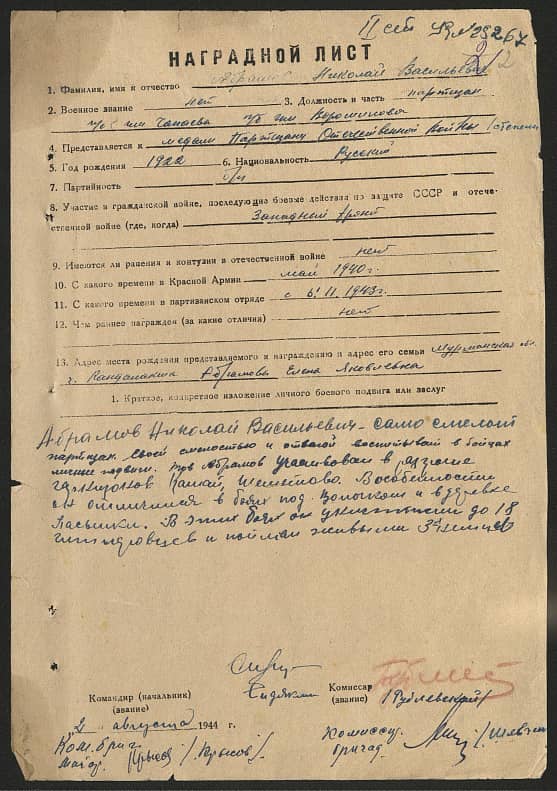 II
№ 29267
2
НАГРАДНОЙ ЛИСТ
1. Фамилия, имя и отчество Абрамов Николай Васильевич
2. Военное звание нет 3. Должность и часть партизан
им Чапаева им Ворошилова
4. Представляется к медали Партизану Отечественной Войны I степени
5. Год рождения 1922 6. Национальность Русский
7. Партийность б/п
8. Участие в гражданской войне, последующие боевые действия по защите СССР и отече-
ственной войне (где, когда) Западный фронт
9. Имеются ли ранения и контузии в отечественной войне нет
10. С какого времени в Красной Армии май 1940 г.
11. С какого времени в партизанском отряде с 6.11.1943 г.
12. Чем раннее награжден (за какие отличия) нет
13. Адрес места рождения представляемого к награждению и адрес его семьи Мурманская обл.
г. Кандалакша Абрамова Елена Яковлевна
1. Краткое, конкретное изложение личного боевого подвига или заслуг
Абрамов Николай Васильевич - само смелый
партизан. Своей смелостью и отвагой воспитывал в бойцах
тов Абрамов участвовал в
гарнизонов
он отличился в боях под и в деревне
В этих боях он уничтожил до 18
гитлеровцев и поймал живыми 3х немцев
Командир (начальник)
(звание)
Комиссар
(звание) /Рублевский/
"2" августа 1944 г.
Ком. бриг.
майор /Крысов/
Комиссар
бригад.